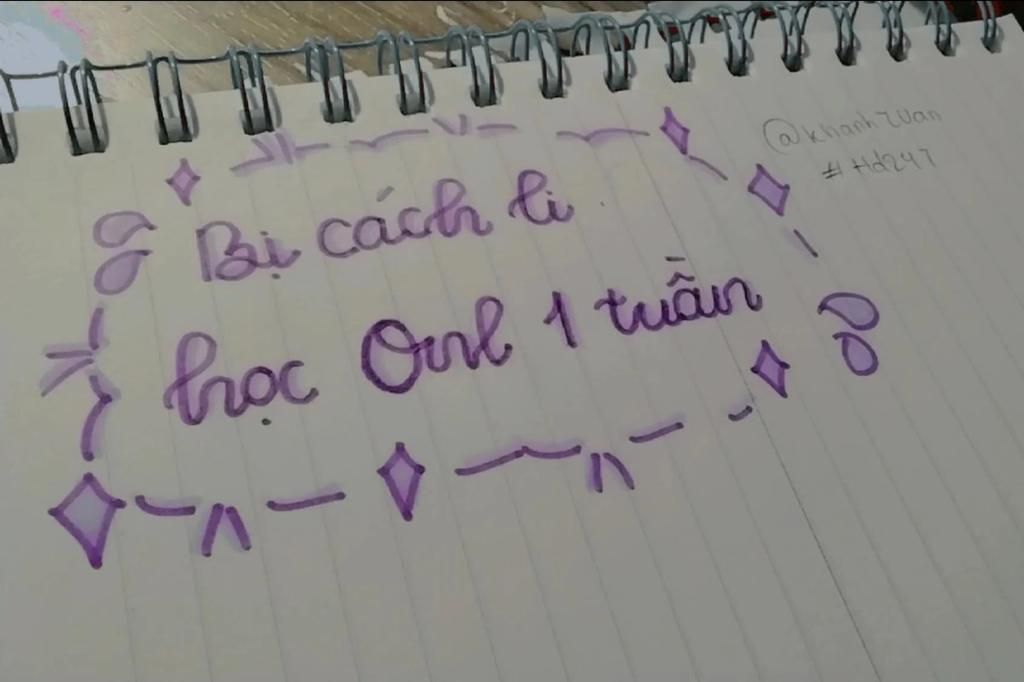 Bị cách li
học Onl 1 tuần
@khanh7uan
#Hd247